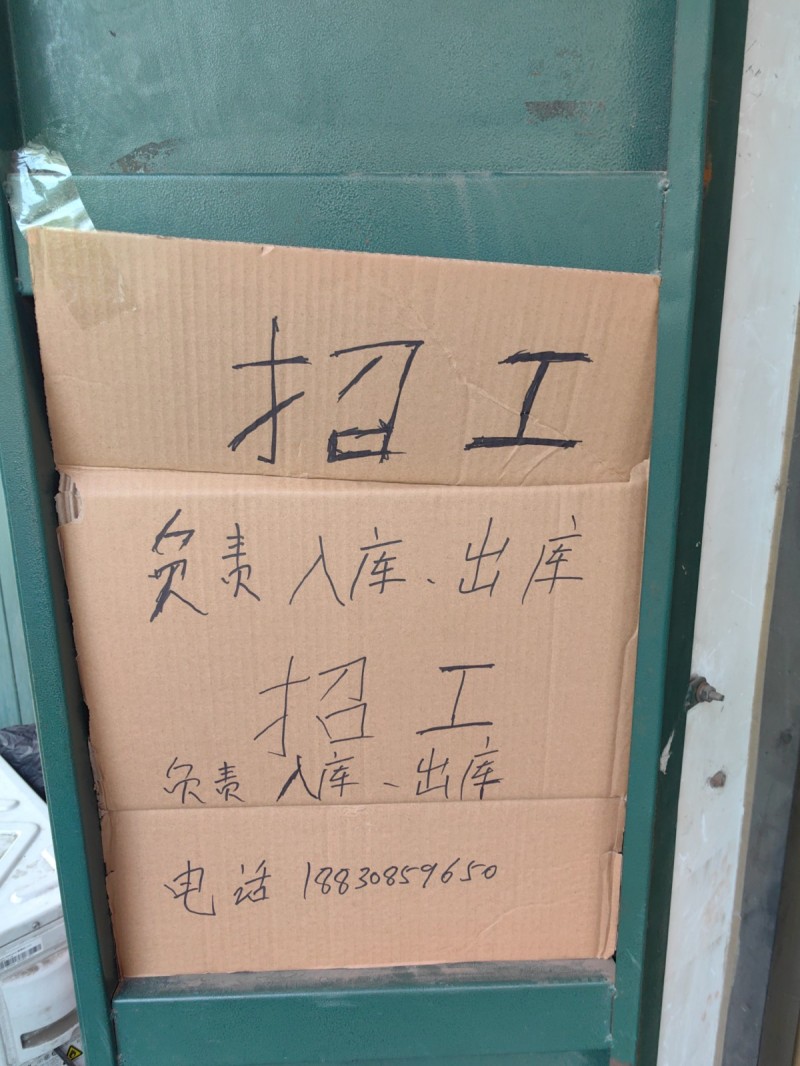 招工
负责入库、出库
招工
负责入库、出库
电话 18830859650